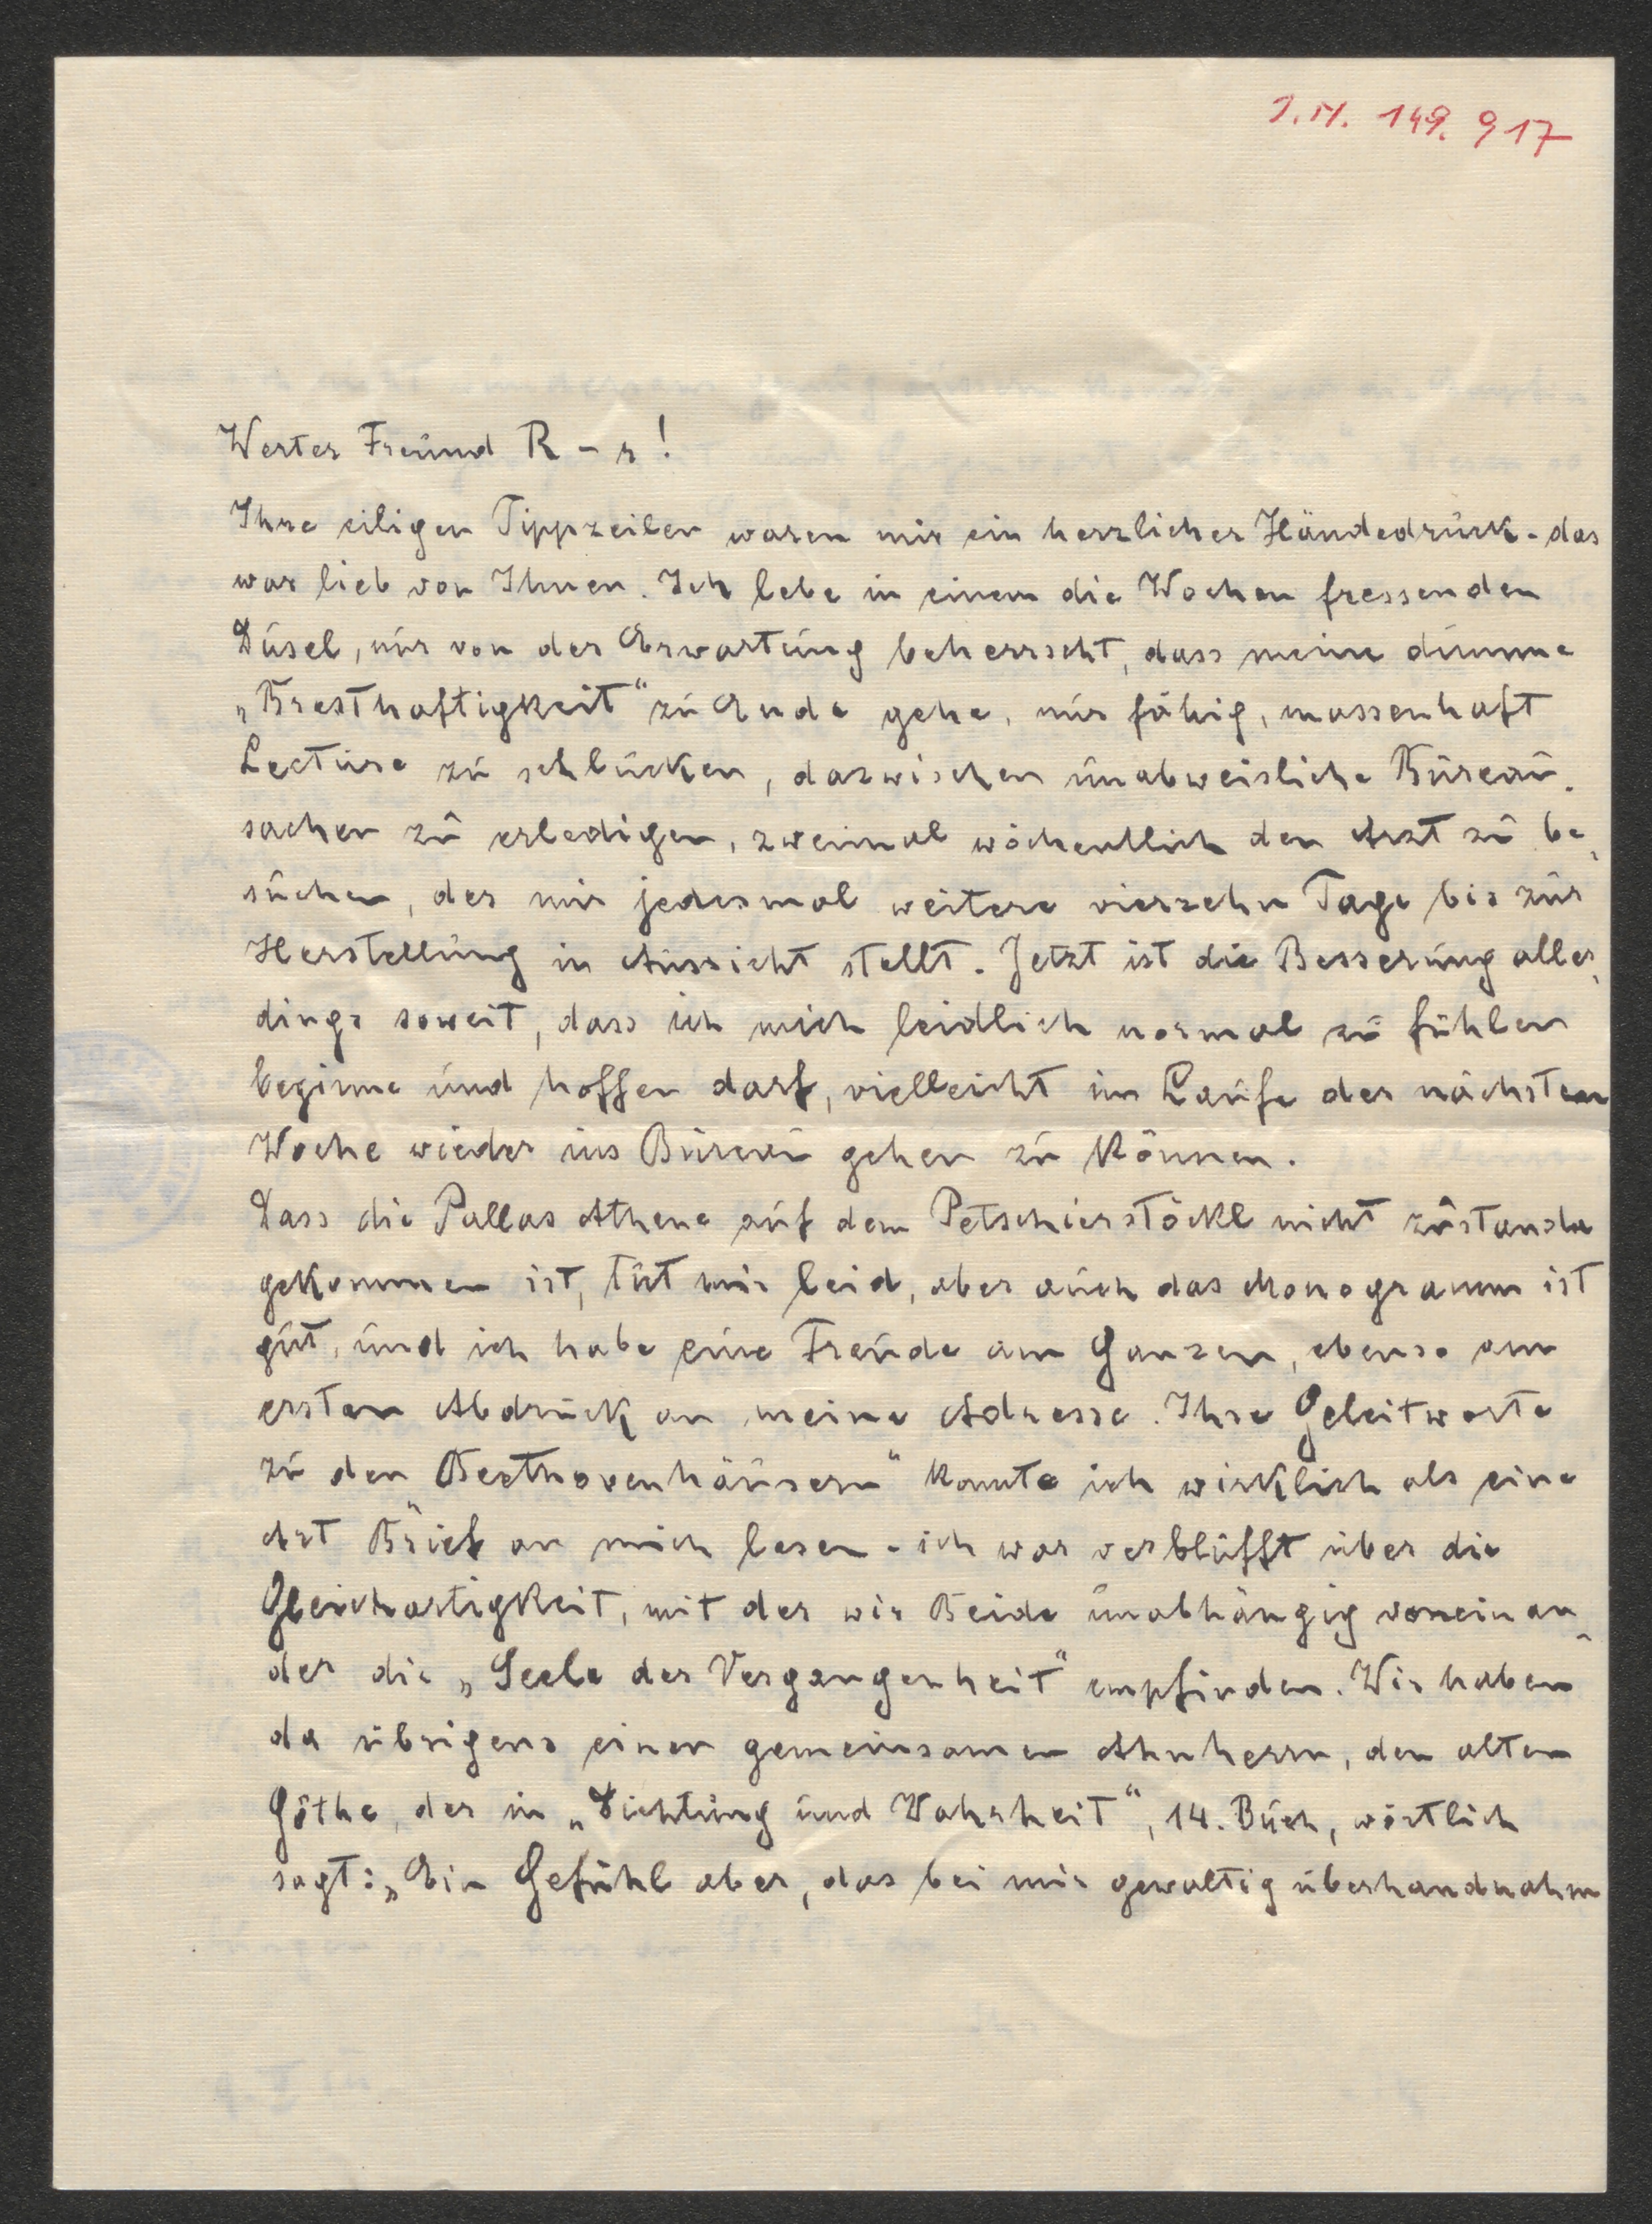 J.N. 149.917
Werter Freund R – r!
Ihre eiligen Tippzeilen waren mir ein herzlicher Händedruck - das
war lieb von Ihnen. Ich lebe in einem die Wochen fressenden
Dusel, nur von der Erwartung beherrscht, dass meine dumme
„Bresthaftigkeit“ zu Ende gehe, nur fähig, massenhaft
Lectüre zu schlucken, dazwischen unabweisliche Bureau-
sachen zu erledigen, zweimal wöchentlich den Arzt zu be-
suchen, der mir jedesmal weitere vierzehn Tage bis zur
Herstellung in Aussicht stellt. Jetzt ist die Besserung aller-
dings soweit, dass ich mich leidlich normal zu fühlen
beginne und hoffen darf, vielleicht im Laufe der nächsten
Woche wieder ins Bureau gehen zu können.
Dass die Pallas Athene auf dem Petschierstöckl nicht zustande
gekommen ist, tut mir leid, aber auch das Monogramm ist
gut, und ich habe eine Freude am Ganzen, ebenso am
ersten Abdruck an meine Adresse. Ihre Geleitworte
zu den „Beethovenhäusern“ konnte ich wirklich als eine
Art Brief an mich lesen - ich war verblüfft über die
Gleichartigkeit, mit der wir Beide unabhängig voneinan-
der die „Seele der Vergangenheit“ empfinden. Wir haben
da übrigens einen gemeinsamen Ahnherrn, den alten
Göthe, der in „Dichtung und Wahrheit“, 14. Buch, wörtlich
sagt: „Ein Gefühl aber, das bei mir gewaltig überhandnahm